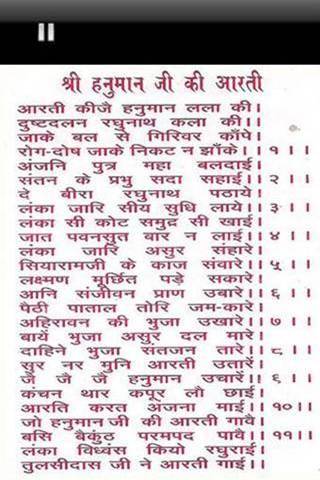 श्री हनुमान जी की आरती
आरती कीजै हनुमान लला की।
दुष्टदलन रघुनाथ कला की।
जाके बल से गिरिवर काँपे।
रोग-दोष जाके निकट न झाँके। १ । ।
अंजनि पुत्र महा बलदाई।
संतन के प्रभु सदा सहाई।। २ । ।
दे बीरा रघुनाथ पठाये।
लंका जारि सीय सुधि लाये। ३ । ।
लंका सी कोट समुद्र सी खाई।
जात पवनसुत बार न लाई। ४ । ।
लंका जारि असुर संहारे।
सियारामजी के काज संवारे। ५ । ।
लक्ष्मण मूर्छित पड़े सकारे।
आनि संजीवन प्राण उबारे। ६ । ।
पैठी पाताल तोरि जम-कारे।
अहिरावन की भुजा उखारे। ७ । ।
बायें भुजा असुर दल मारे।
दाहिने भुजा संतजन तारे। ८ । ।
सुर नर मुनि आरती उतारें।
जै जै जै हनुमान उचारें। ६ । ।
कंचन थार कपूर लौ छाई।
आरति करत अंजना माई।। १०। ।
जो हनुमान जी की आरती गावै।
बसि बैकुंठ परमपद पावै। ११। ।
लंका विध्वंस कियो रघुराई।
तुलसीदास जी ने आरती गाई।।